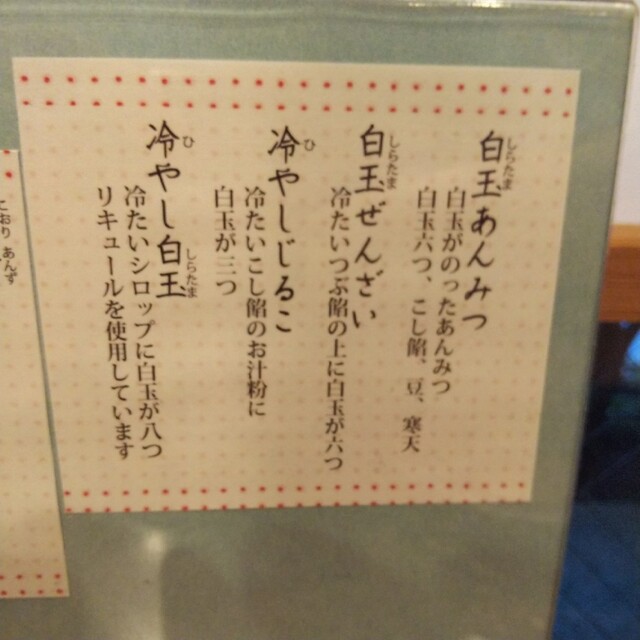 白玉あんみつ
しらたま
白玉がのったあんみつ
白玉六つ、こし餡、豆、寒天
白玉ぜんざい
しらたま
冷たいつぶ餡の上に白玉が六つ
冷やしじるこ
ひ
冷たいこし餡のお汁粉に
白玉が三つ
冷やし白玉
ひ
しらたま
冷たいシロップに白玉が八つ
リキュールを使用しています
こおり あんず